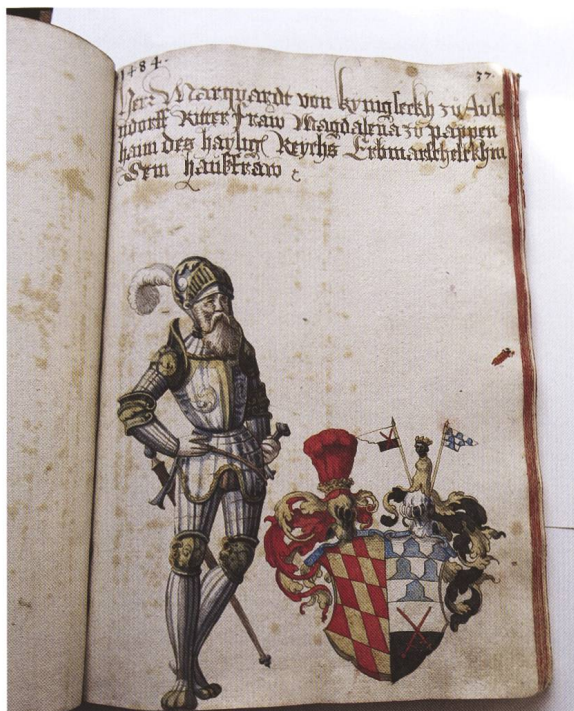 1484.
37.
Herr Marquardt von kynigseckh zů Aule
ndorff Ritter fraw Magdalena zů pappen
haim des haylig Reychs Erbmarschelckhin
Sein hausfraw